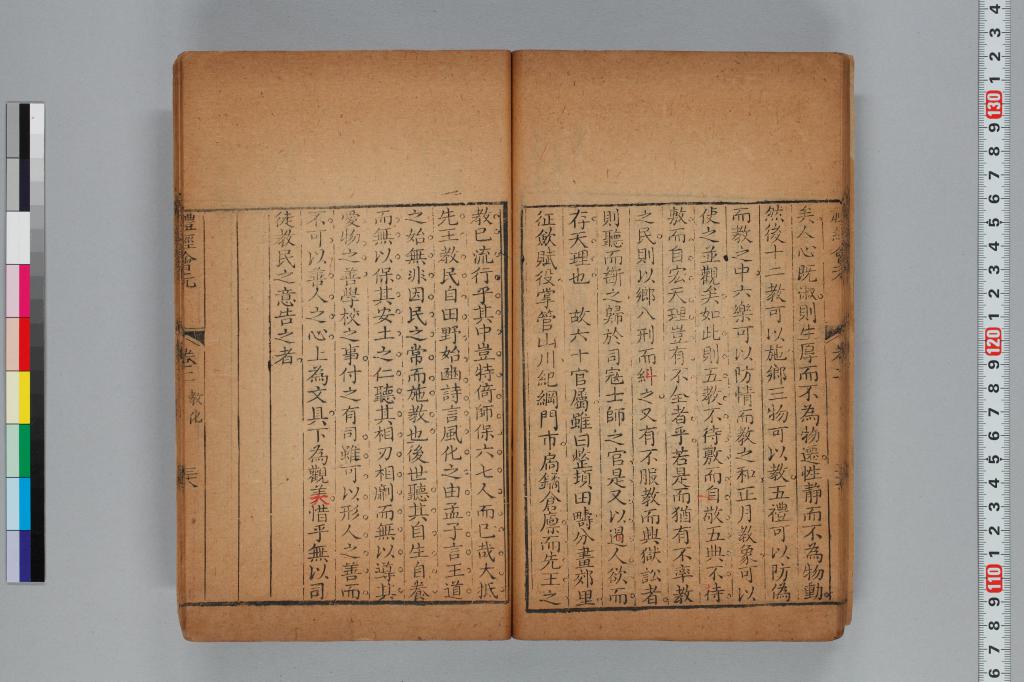 矣人心既淑則生厚而不為物遷性静而不為物動
然後十二教可以施鄉三物可以教五禮可以防偽
而教之中六樂可以防情而教之和正月教象可以
使之並觀矣如此則五教不待敷而自敬五典不待
敷而自宏天理豈有不全者乎若是而猶有不率教
之民則以鄉八刑而糾之又有不服教而與獄訟者
則聽而斷之歸於司寇士師之官是又以遏人欲而
存天理也 故六十官屬雖曰整頓田疇分畫郊里
征斂賦役掌管山川紀綱門市扄鐍倉廪而先王之
教已流行乎其中豈特倚師保六七人而已哉大抵
先王教民自田野始豳詩言風化之由孟子言王道
之始無非因民之常而施教也後世聽其自生自養
而無以保其安土之仁聽其相刃相劘而無以導其
愛物之善學校之事付之有司雖可以形人之善而
不可以善人之心上為文具下為觀美惜乎無以司
徒教民之意告之者
禮經會元
卷二 教化